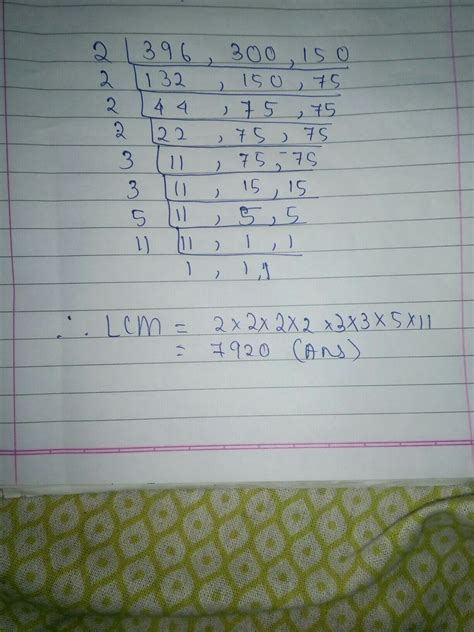 2 | 396 , 300 , 150
2 | 132 , 150 , 75
2 | 44 , 75 , 75
2 | 22 , 75 , 75
3 | 11 , 75 , 75
3 | 11 , 15 , 15
5 | 11 , 5 , 5
11 | 11 , 1 , 1
1 , 1 , 1
∴ LCM = 2×2×2×2×3×3×5×11
= 7920 (Ans)